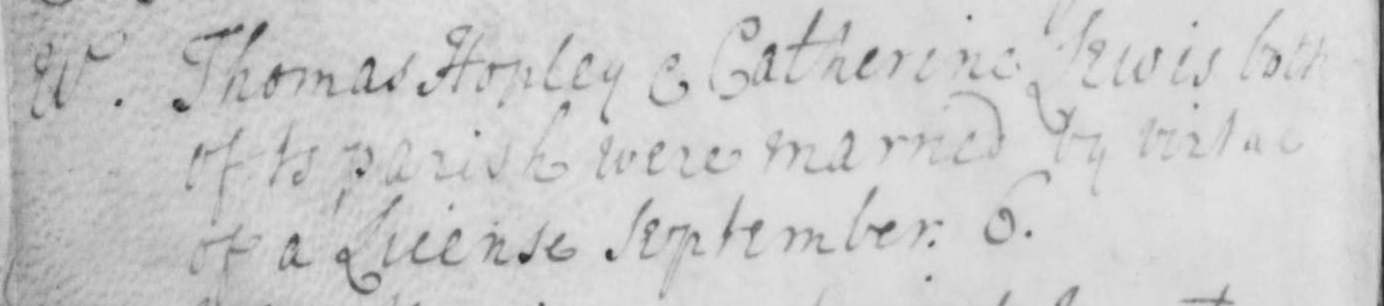 W. Thomas Hopley & Catherine Lewis both
of ts parish were married by virtue
of a License September. 6.